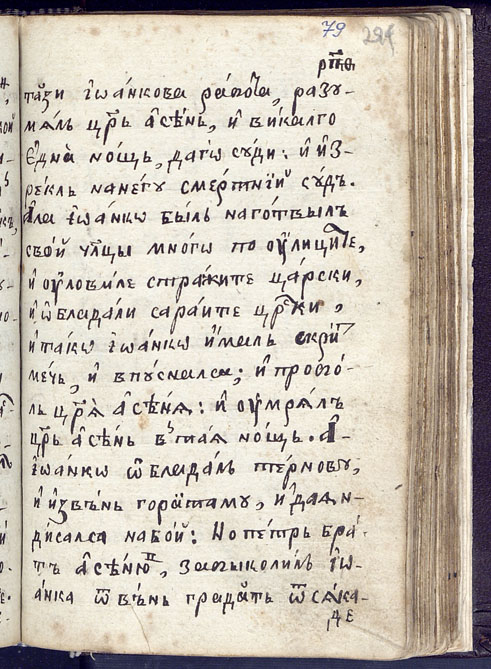 79
284
рп҃ѳ
таꙁи іѡа́нкова ра́бота, разу-
мѧлъ цр҃ь а҆сѣ́нь, и҆ викалго
е҆дна̀ но́щь, дагѡ су́ди: и҆ и҆з-
рекль нанегу сме́ртнїи судъ.
Ала іѡа́нкѡ бы́лъ наготвылъ
свой чл҃цы мно́гѡ по ѹ҆лицыте,
и҆ ѹ҆ловиле стра́жите ца́рски,
и҆ ѡ҆бладали сара́ите цр҃ски,
и҆ такѡ іѡа́нкѡ и҆малъ скри
мечь, и҆ впусналса; и҆ прого-
лъ цр҃ѧ а҆сѣ́нѧ: и҆ ѹ҆мрѧлъ
цр҃ь а҆се́нь в таѧ но́щь. А҆-
іѡа́нкѡ ѡ҆бладалъ терно́ву,
и҆ и҆звѣнь гора́таму, и҆ даѧ н-
дисалса набо́й: Но пе́тръ бра́-
тъ а҆сѣ́ню, заѡ҆колилъ іѡ-
а́нка ѿ вѣ́нь гра́датъ ѿ сѧ́ка-
де